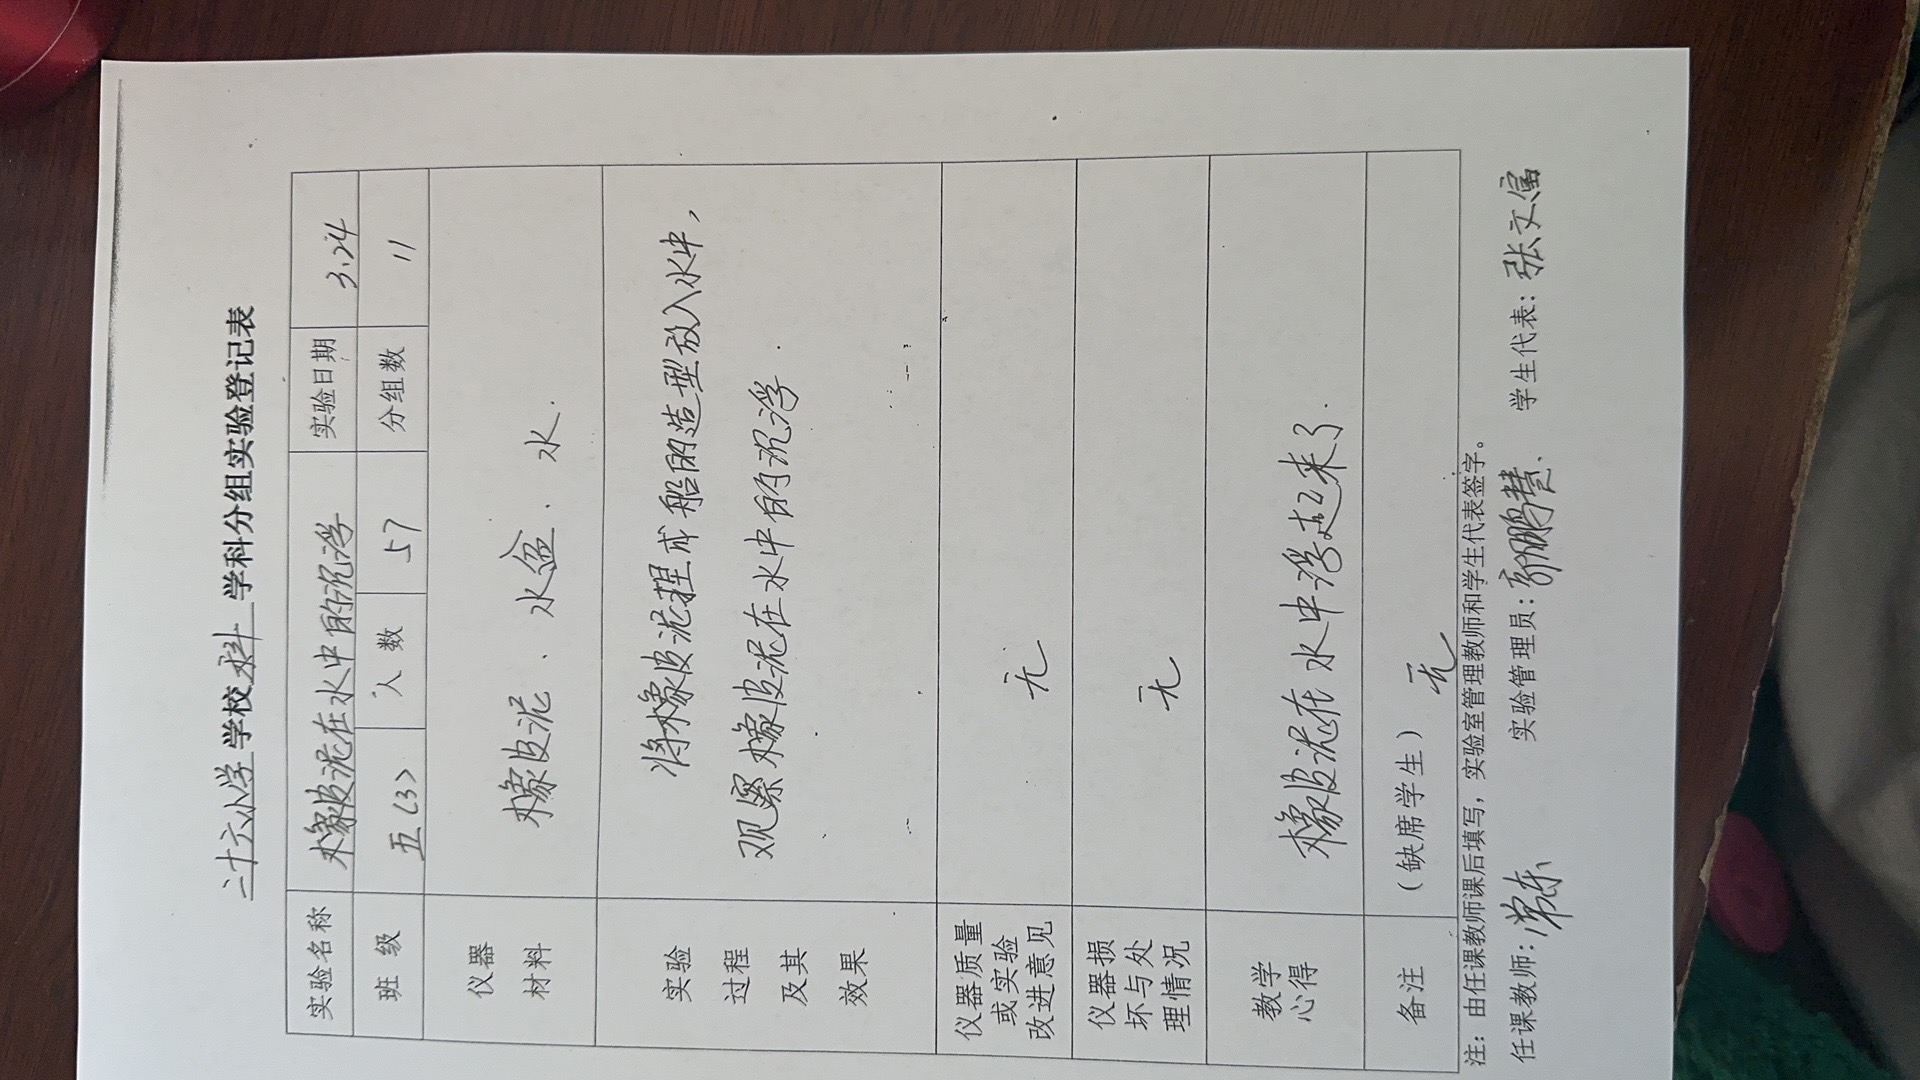 二十六小学 学校 科 学科分组实验登记表
实验名称 橡皮泥在水中的沉浮 实验日期 3.24
班级 五(3) 人数 57 分组数 11
仪器材料 橡皮泥、水盆、水.
实验过程及其效果 将橡皮泥捏成船的造型放入水中,
观察橡皮泥在水中的沉浮.
仪器质量或实验改进意见 无
仪器损坏与处理情况 无
教学心得 橡皮泥在水中浮起来了.
备注 (缺席学生) 无
注:由任课教师课后填写,实验室管理教师和学生代表签字。
任课教师: 实验管理员:郭鹏慧. 学生代表:张文